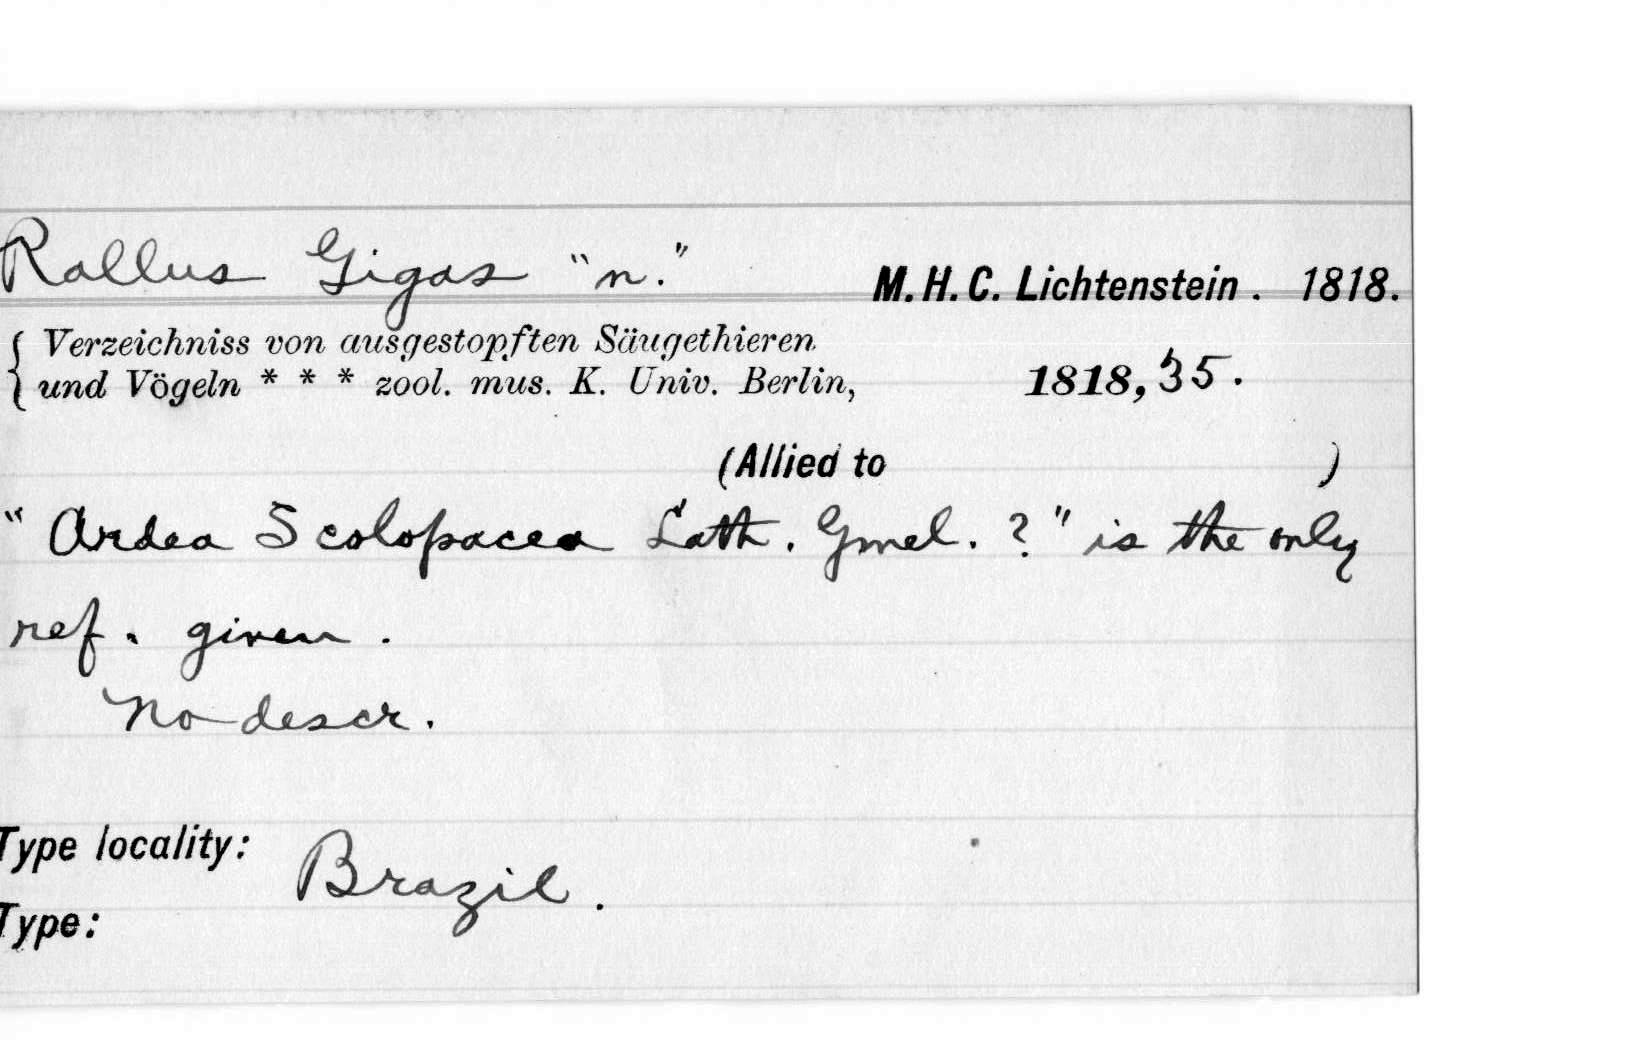 Rallus Gigas "n." M. H. C. Lichtenstein . 1818.
Verzeichniss von ausgestopften Säugethieren
und Vögeln * * * zool. mus. K. Univ. Berlin, 1818, 35.
(Allied to )
"Ardea Scolopacea Lath. Gmel. ?" is the only
ref. given.
No descr.
Type locality: Brazil.
Type: